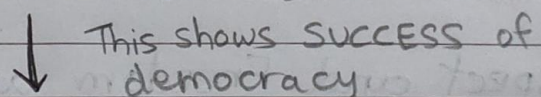 This shows SUCCESS of
democracy